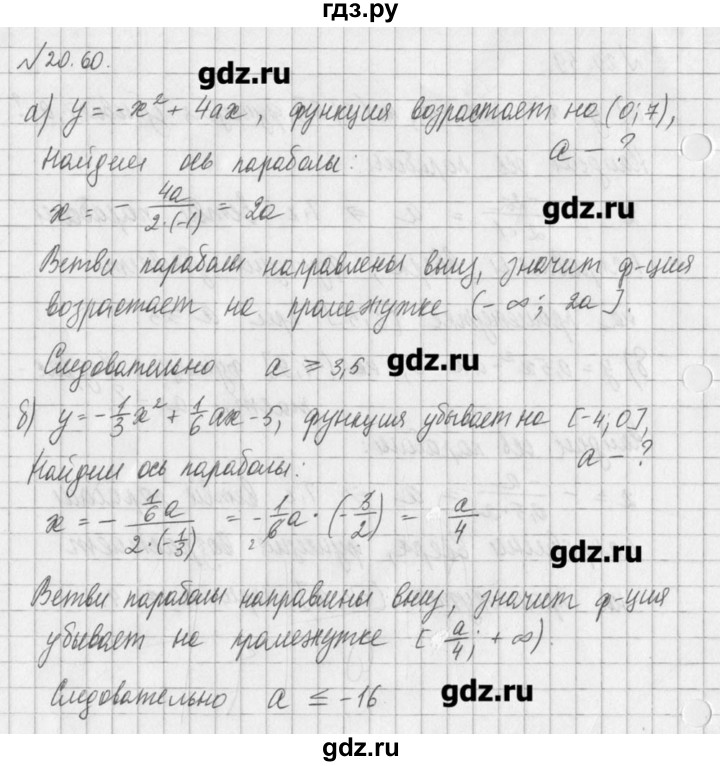 гдз.ру
№20.60.
gdz.ru
а) y = -x² + 4ax, функция возрастает на (0; 7),
a - ?
Найдем ось параболы:
x = - 4a / 2·(-1) = 2a
gdz.ru
Ветви параболы направлены вниз, значит ф-ция
возрастает на промежутке (-∞; 2a].
Следовательно a ⩾ 3,5
gdz.ru
б) y = -1/3 x² + 1/6 ax - 5, функция убывает на [-4; 0],
a - ?
Найдем ось параболы:
x = - 1/6 a / 2·(-1/3) = -1/6 a · (-3/2) = a/4
gdz.ru
Ветви параболы направлены вниз, значит ф-ция
убывает на промежутке [a/4; +∞).
Следовательно a ≤ -16
gdz.ru
gdz.ru